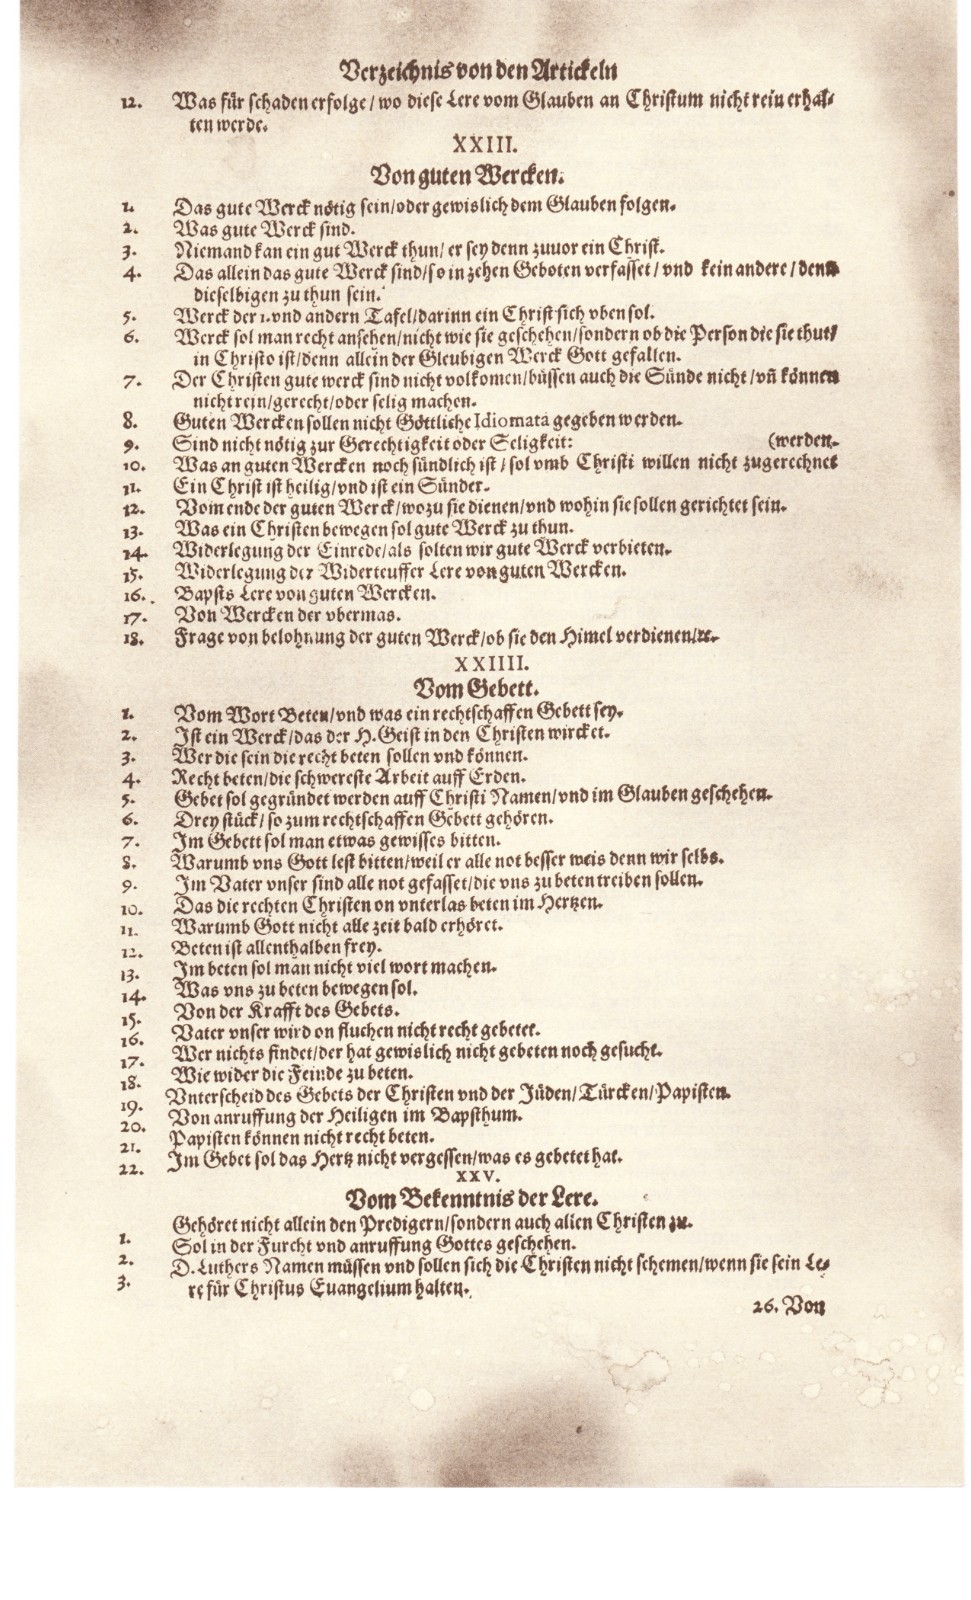 Verzeichnis von den Artickeln
12. Was für schaden erfolge / wo diese Lere vom Glauben an Christum nicht rein erhal-
ten werde.
XXIII.
Von guten Wercken.
1. Das gute Werck nötig sein/oder gewislich dem Glauben folgen.
2. Was gute Werck sind.
3. Niemand kan ein gut Werck thun/ er sey denn zuuor ein Christ.
4. Das allein das gute Werck sind/so in zehen Geboten verfasset / vnd kein andere / denn
dieselbigen zu thun sein.
5. Werck der 1.vnd andern Tafel/darinn ein Christ sich vben sol.
6. Werck sol man recht ansehen/nicht wie sie geschehen/sondern ob die Person die sie thut/
in Christo ist/denn allein der Gleubigen Werck Gott gefallen.
7. Der Christen gute werck sind nicht volkomen/büssen auch die Sünde nicht /vñ können
nicht rein/gerecht/oder selig machen.
8. Guten Wercken sollen nicht Göttliche Idiomata gegeben werden.
9. Sind nicht nötig zur Gerechtigkeit oder Seligkeit: (werden.
10. Was an guten Wercken noch sündlich ist / sol vmb Christi willen nicht zugerechnet
11. Ein Christ ist heilig/vnd ist ein Sünder.
12. Vom ende der guten Werck/wozu sie dienen/vnd wohin sie sollen gerichtet sein.
13. Was ein Christen bewegen sol gute Werck zu thun.
14. Widerlegung der Einrede/als solten wir gute Werck verbieten.
15. Widerlegung der Widerteuffer Lere von guten Wercken.
16. Bapsts Lere von guten Wercken.
17. Von Wercken der vbermas.
18. Frage von belohnung der guten Werck/ob sie den Himel verdienen/ꝛc.
XXIIII.
Vom Gebett.
1. Vom Wort Beten/vnd was ein rechtschaffen Gebett sey.
2. Ist ein Werck/das der H.Geist in den Christen wircket.
3. Wer die sein die recht beten sollen vnd können.
4. Recht beten/die schwereste Arbeit auff Erden.
5. Gebet sol gegründet werden auff Christi Namen/vnd im Glauben geschehen.
6. Drey stück/ so zum rechtschaffen Gebett gehören.
7. Im Gebett sol man etwas gewisses bitten.
8. Warumb vns Gott lest bitten/weil er alle not besser weis denn wir selbs.
9. Im Vater vnser sind alle not gefasset/die vns zu beten treiben sollen.
10. Das die rechten Christen on vnterlas beten im Hertzen.
11. Warumb Gott nicht alle zeit bald erhöret.
12. Beten ist allenthalben frey.
13. Im beten sol man nicht viel wort machen.
14. Was vns zu beten bewegen sol.
15. Von der Krafft des Gebets.
16. Vater vnser wird on fluchen nicht recht gebetet.
17. Wer nichts findet/der hat gewislich nicht gebeten noch gesucht.
18. Wie wider die Feinde zu beten.
19. Vnterscheid des Gebets der Christen vnd der Jüden/Türcken/Papisten.
20. Von anruffung der Heiligen im Bapsthum.
21. Papisten können nicht recht beten.
22. Im Gebet sol das Hertz nicht vergessen/was es gebetet hat.
XXV.
Vom Bekenntnis der Lere.
1. Gehöret nicht allein den Predigern/sondern auch allen Christen zu.
2. Sol in der Furcht vnd anruffung Gottes geschehen.
3. D.Luthers Namen müssen vnd sollen sich die Christen nicht schemen/wenn sie sein Le-
re für Christus Euangelium halten.
26. Von